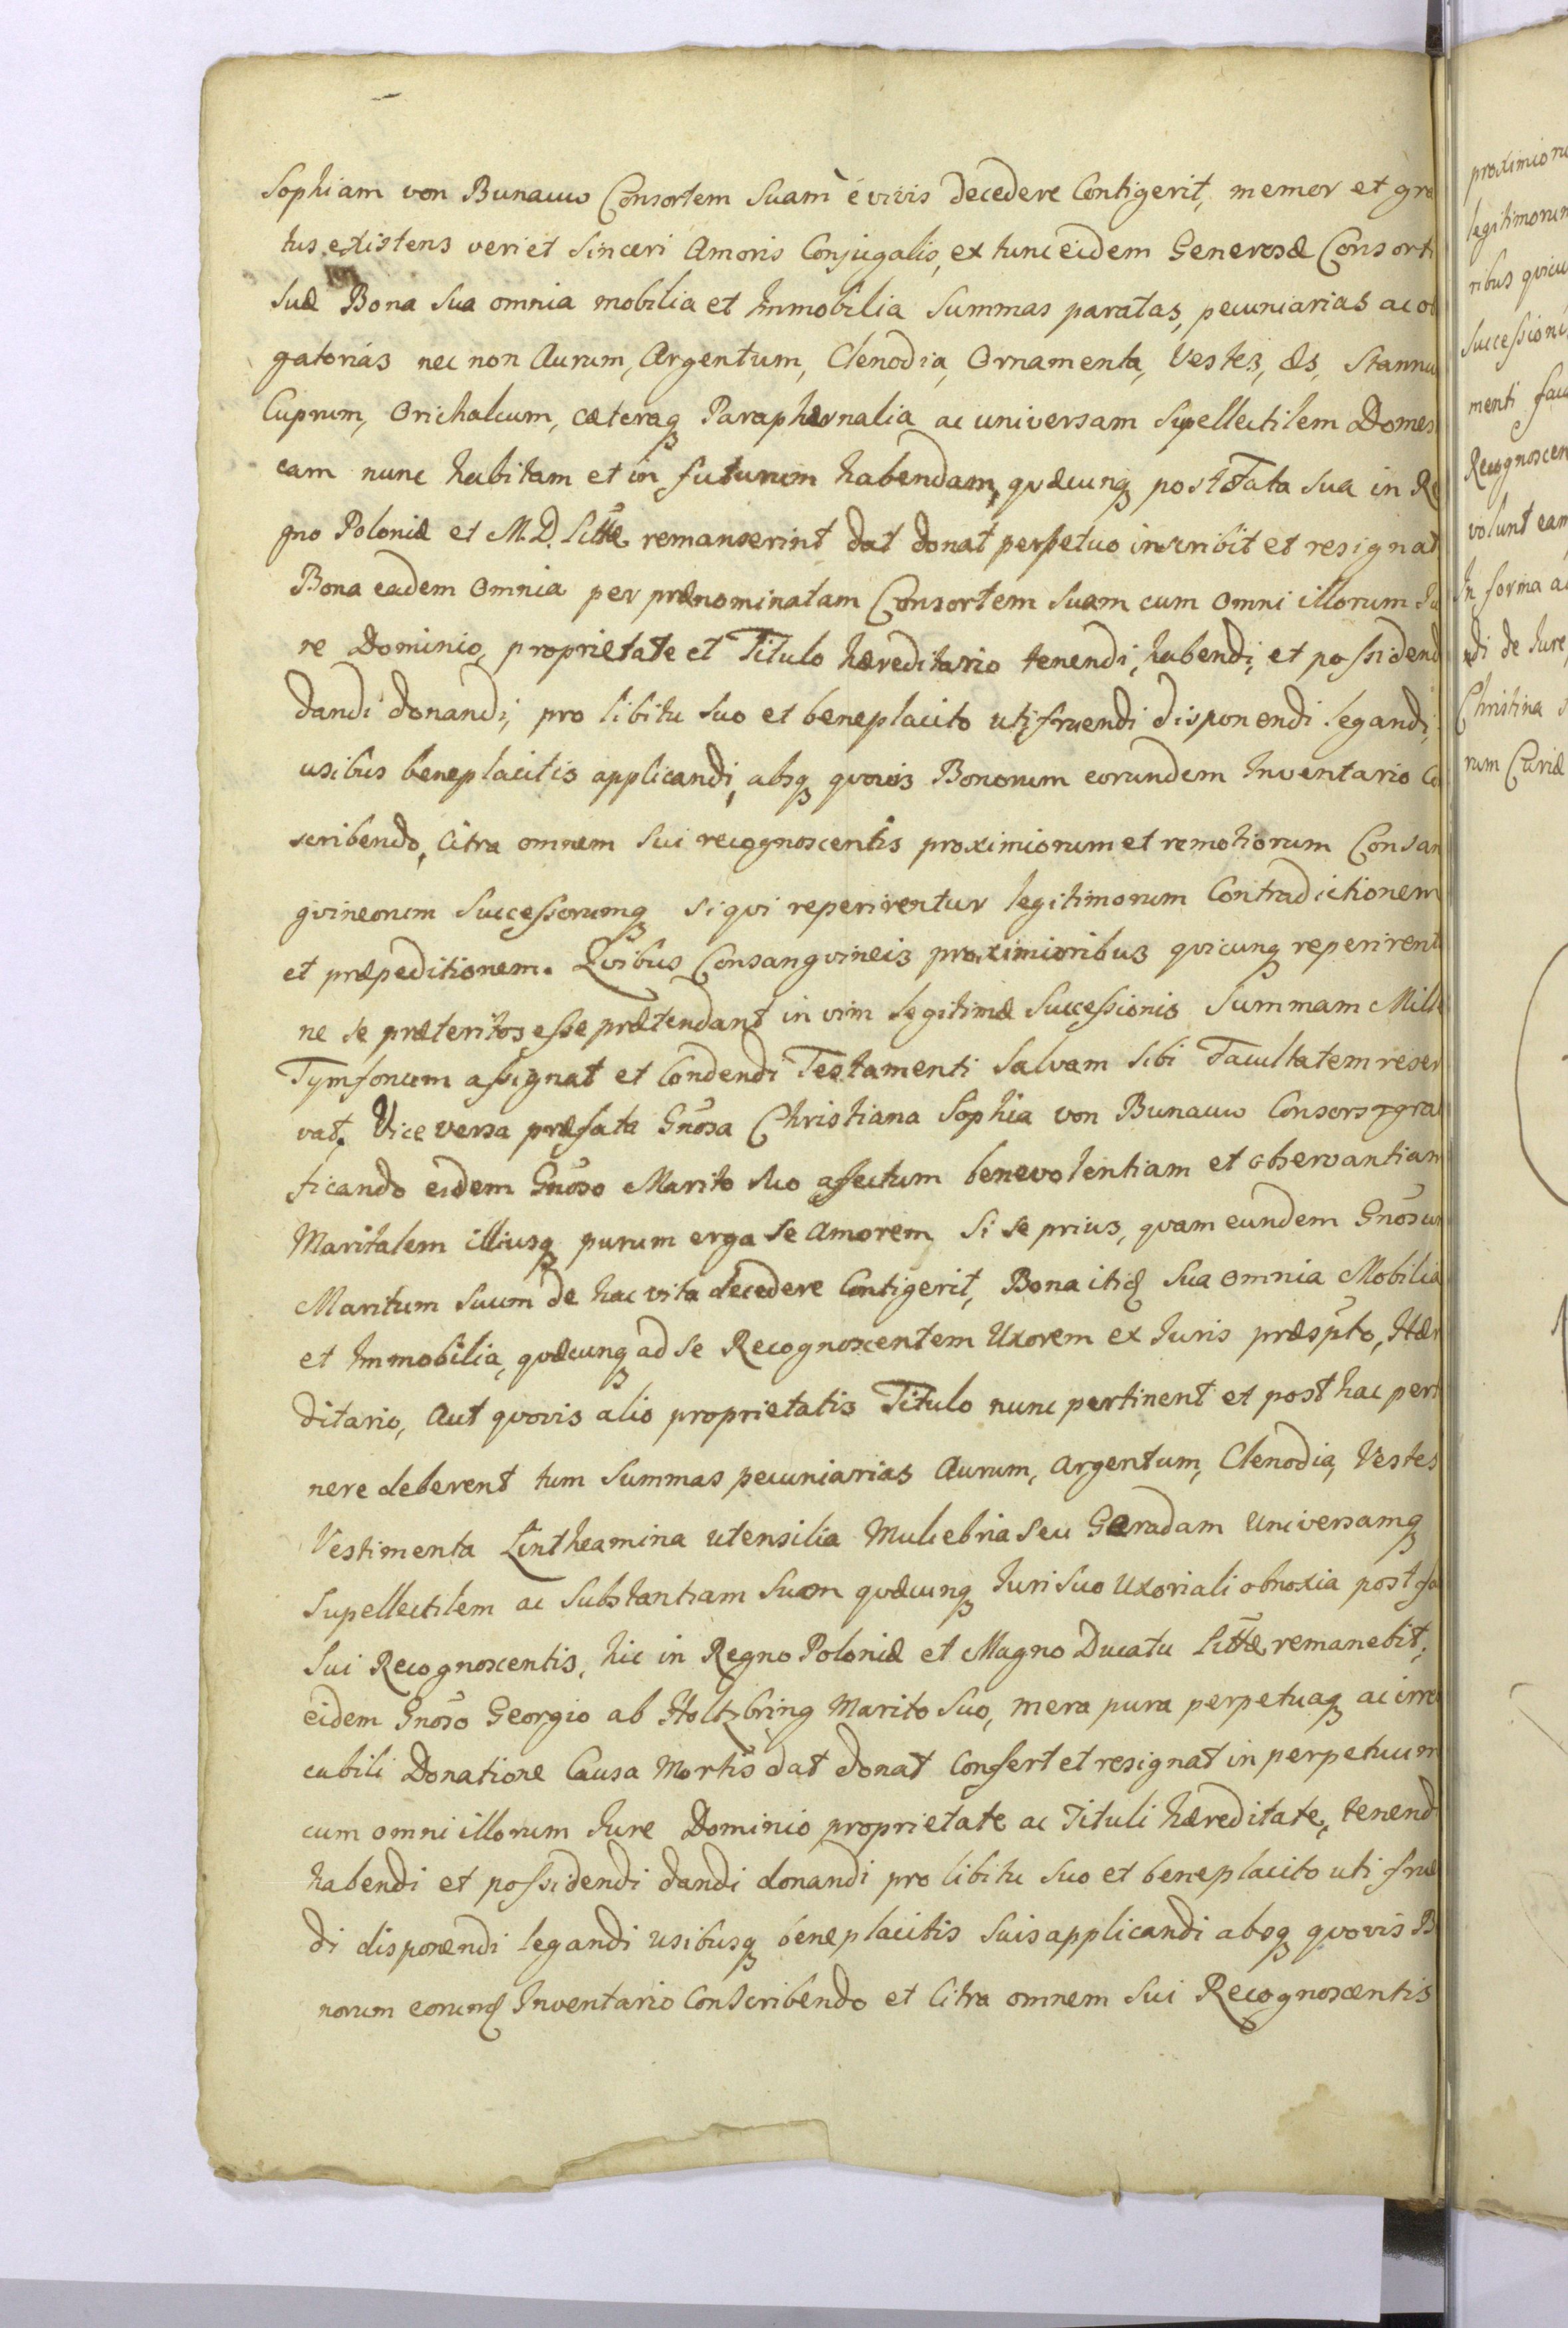 Sophiam von Bunauw Consortem Suam è vivis decedere Contigerit, memor et gra
tus existens veri et Sinceri Amoris Conjugalis, ex tunc eidem Generosæ Consorti
Suæ Bona Sua omnia mobilia et Immobilia Summas paratas, pecuniarias ac ob
gatorias nec non Aurum, Argentum, Clenodia, Ornamenta, Vestes, Æs, Stannu
Cuprum, Orichalcum, cæteraq Paraphernalia ac universam Supellectilem Domes
cam nunc habitam et in futurum habendam, qvæcunq post Fata Sua in Re
gno Poloniæ et M.D. Littæ remanserint dat donat perpetuo inscribit et resignat
Bona eadem Omnia per prænominatam Consortem Suam cum Omni illorum Ju
re Dominio, proprietate et Titulo hæreditario tenendi, habendi, et possidend
dandi donandi, pro libitu Suo et beneplacito utifruendi disponendi legandi,
usibus beneplacitis applicandi, absq qvovis Bonorum eorundem Inventario Co
scribendo, Citra omnem Sui recognoscentis proximiorum et remotiorum Consan
gvineorum Successorumq si qvi reperirentur legitimorum Contradictionem
et præpeditionem. Qvibus Consangvineis proximioribus qvicunq reperirent
ne se præteritos esse prætendant in vim legitimæ Successionis Summam Mille
Tymfonum assignat et Condendi Testamenti Salvam Sibi Facultatem reser
vat. Vice versa præfata Gnosa Christiana Sophia von Bunauw Consors gra
ficando eidem Gnoso Marito Suo affectum benevolentiam et observantiam
Maritalem illiusq purum erga Se Amorem, Si Se prius, qvam eundem Gnosum
Maritum Suum de hac vita decedere Contigerit, Bona itidem Sua Omnia Mobilia
et Immobilia, qvæcunq ad Se Recognoscentem Uxorem ex Juris præspto, Hær
ditario, Aut qvovis alio proprietatis Titulo nunc pertinent et post hac pert
nere deberent tum Summas pecuniarias Aurum, Argentum, Clenodia, Vestes
Vestimenta Lintheamina utensilia Muliebria Seu Geradam Universamq
Supellectilem ac Substantiam Suam qvæcunq Juri Suo Uxoriali obnoxia post fa
Sui Recognoscentis, hic in Regno Poloniæ et Magno Ducatu Littæ remanebit,
eidem Gnoso Georgio ab Holtzbring Marito Suo, mera pura perpetuaq ac irre
cabili Donatione Causa Mortis dat donat Confert et resignat in perpetuum
cum omni illorum Jure Dominio proprietate ac Tituli hæreditate, tenend
habendi et possidendi dandi donandi pro libitu Suo et beneplacito uti frue
di disponendi legandi usibusq beneplacitis Suis applicandi absq qvovis B
norum eorund Inventario Conscribendo et Citra omnem Sui Recognoscentis
proximioru
legitimorum
ribus qvicu
Successioni
menti facu
Recognoscen
volunt eam
In forma a
di de Jure
Christina S
rum Curiæ